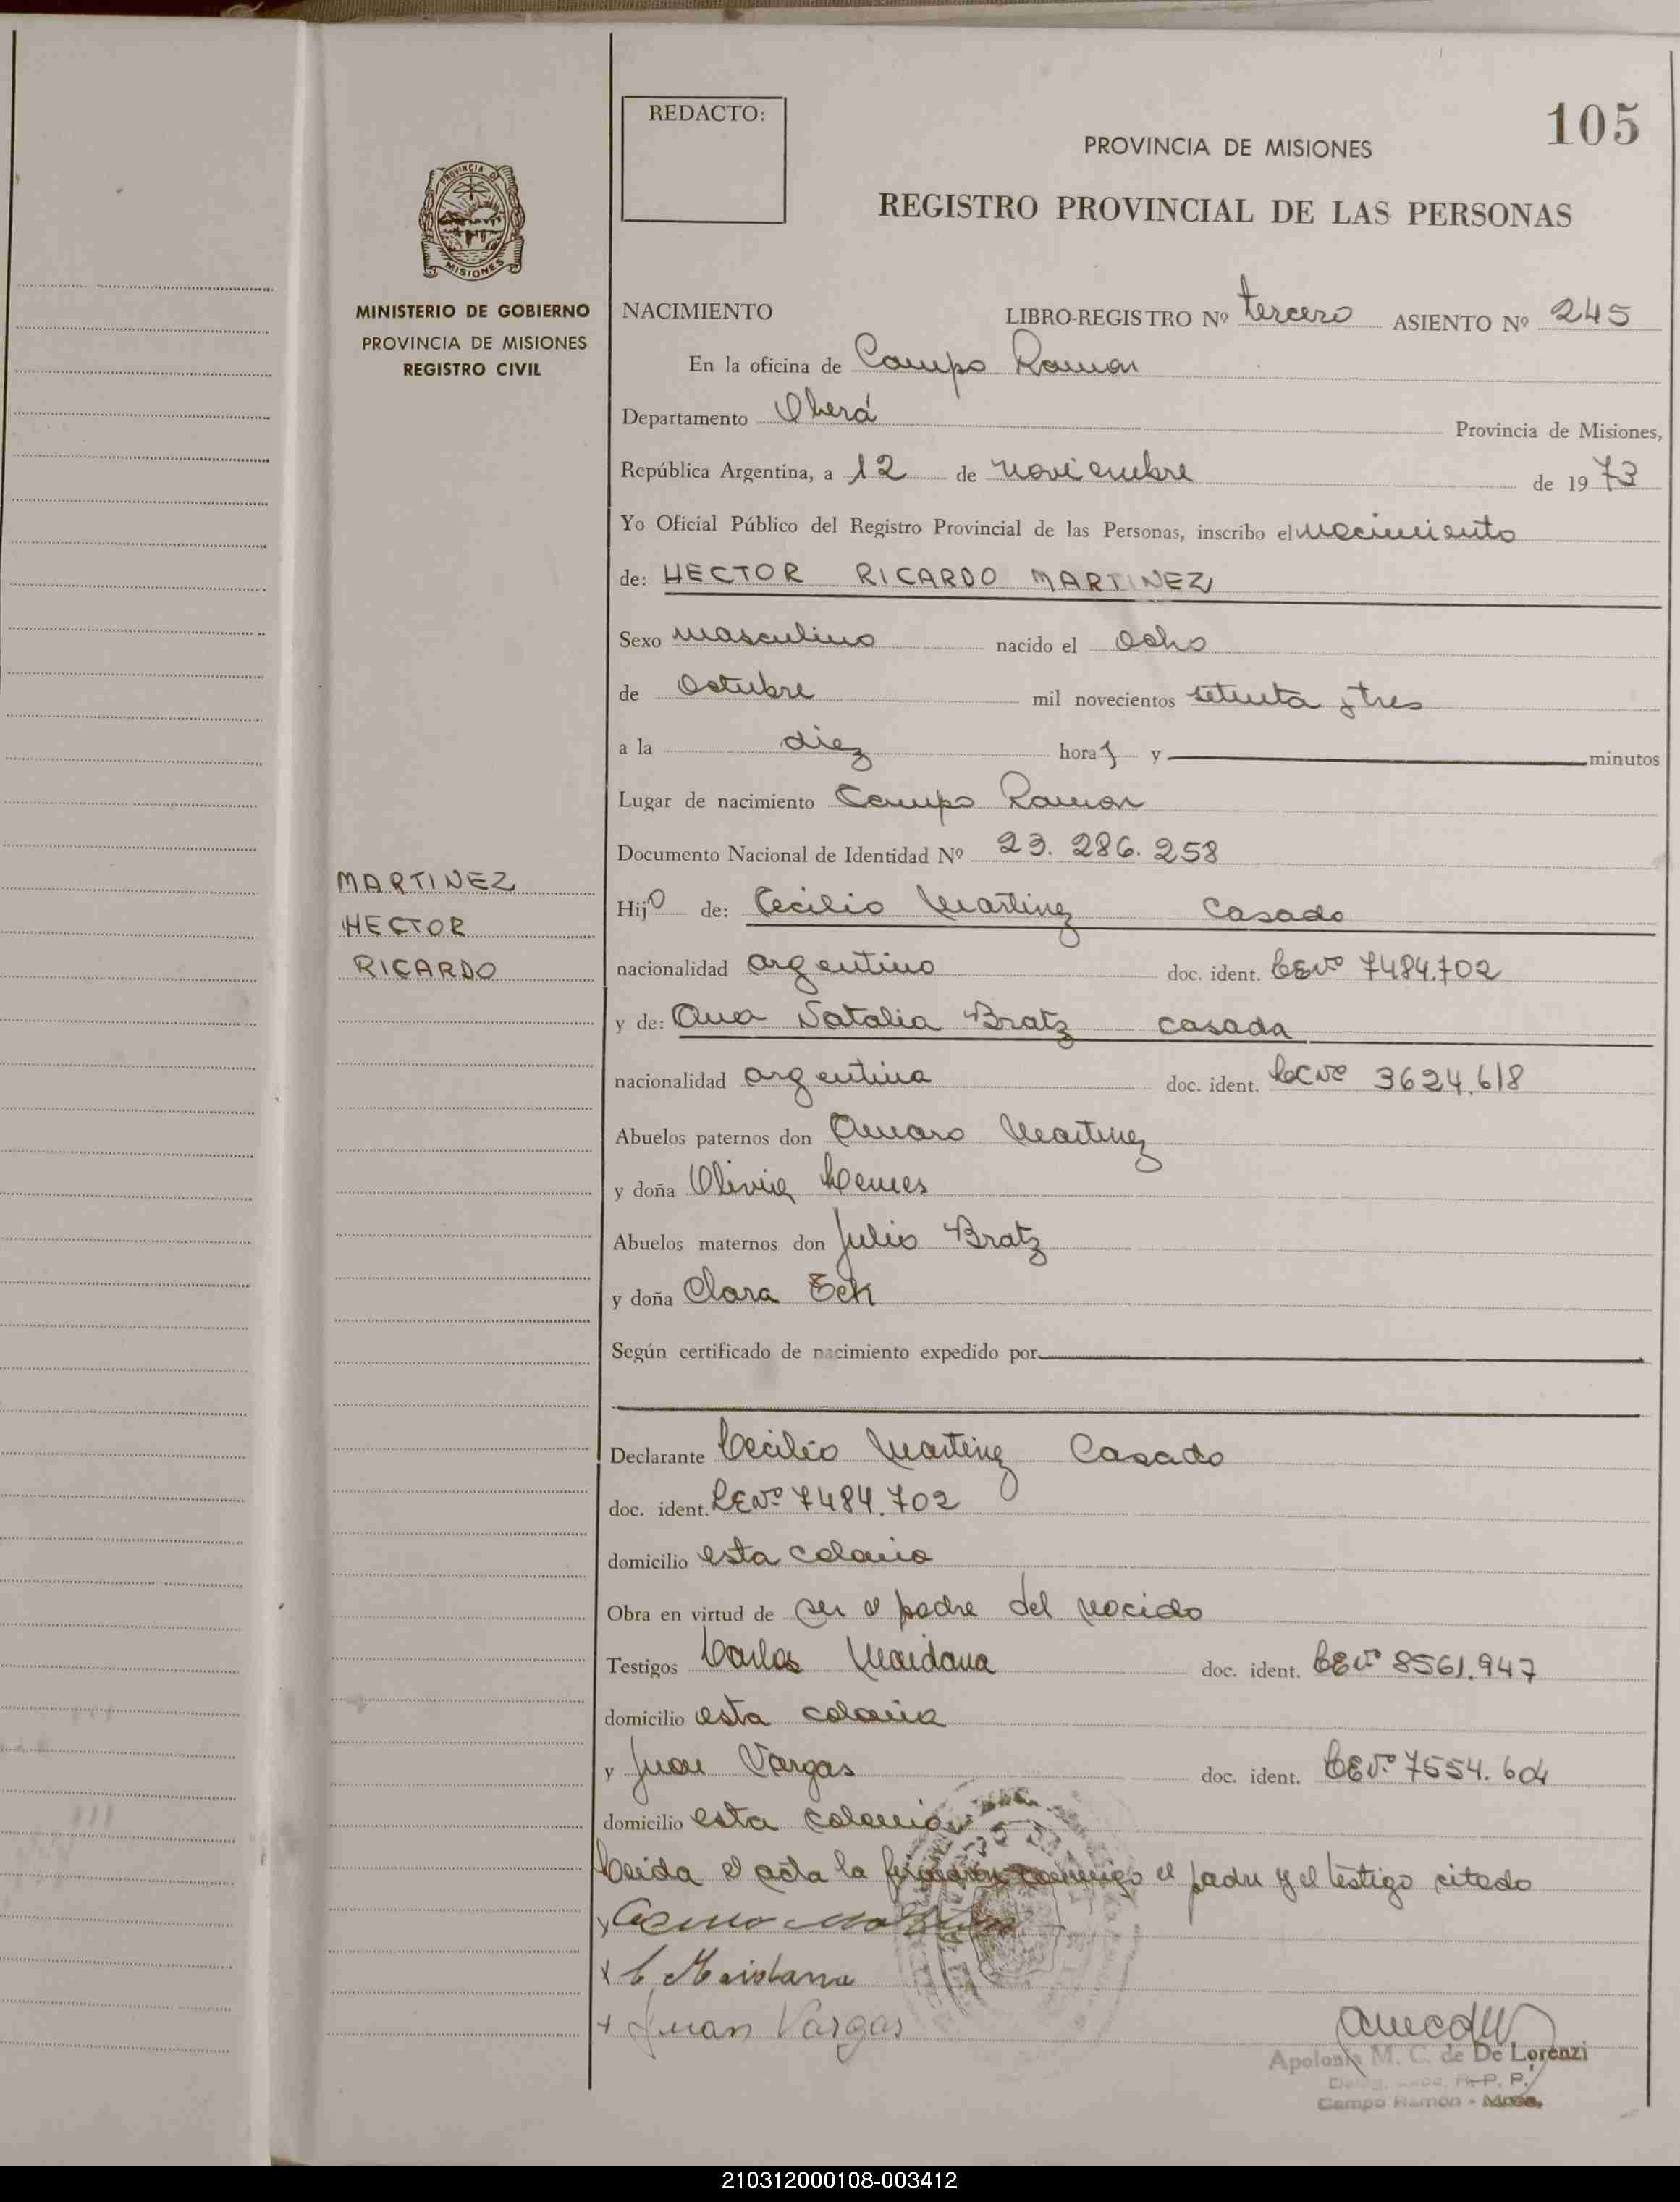 105
REDACTO:
PROVINCIA DE MISIONES
REGISTRO PROVINCIAL DE LAS PERSONAS
PROVINCIA DE
MISIONES
MINISTERIO DE GOBIERNO
PROVINCIA DE MISIONES
REGISTRO CIVIL
NACIMIENTO LIBRO-REGISTRO Nº tercero ASIENTO Nº 245
En la oficina de Campo Ramon
Departamento Oberá Provincia de Misiones,
República Argentina, a 12 de noviembre de 1973
Yo Oficial Público del Registro Provincial de las Personas, inscribo el nacimiento
de: HECTOR RICARDO MARTINEZ
Sexo masculino nacido el ocho
de Octubre mil novecientos setenta y tres
a la diez hora y minutos
Lugar de nacimiento Campo Ramon
Documento Nacional de Identidad Nº 23.286.258
MARTINEZ
HECTOR
RICARDO
Hijo de: Cecilio Martinez Casado
nacionalidad argentino doc. ident. LENº 7484.702
y de: Ana Natalia Bratz casada
nacionalidad argentina doc. ident. LCNº 3624.618
Abuelos paternos don Amaro Martinez
y doña Olivia Lemes
Abuelos maternos don Julio Bratz
y doña Clara Eck
Según certificado de nacimiento expedido por
Declarante Cecilio Martinez Casado
doc. ident. LENº 7484.702
domicilio esta colonia
Obra en virtud de ser el padre del nacido
Testigos Carlos Maidana doc. ident. LENº 8561.947
domicilio esta colonia
y Juan Vargas doc. ident. LENº 7554.604
domicilio esta colonia
Leida el acta la firmaron conmigo el padre y el testigo citado
C Maidana
Juan Vargas
Apolonia M. C. de De Lorenzi
R. P. P.
Campo Ramon - Mnes.
210312000108-003412